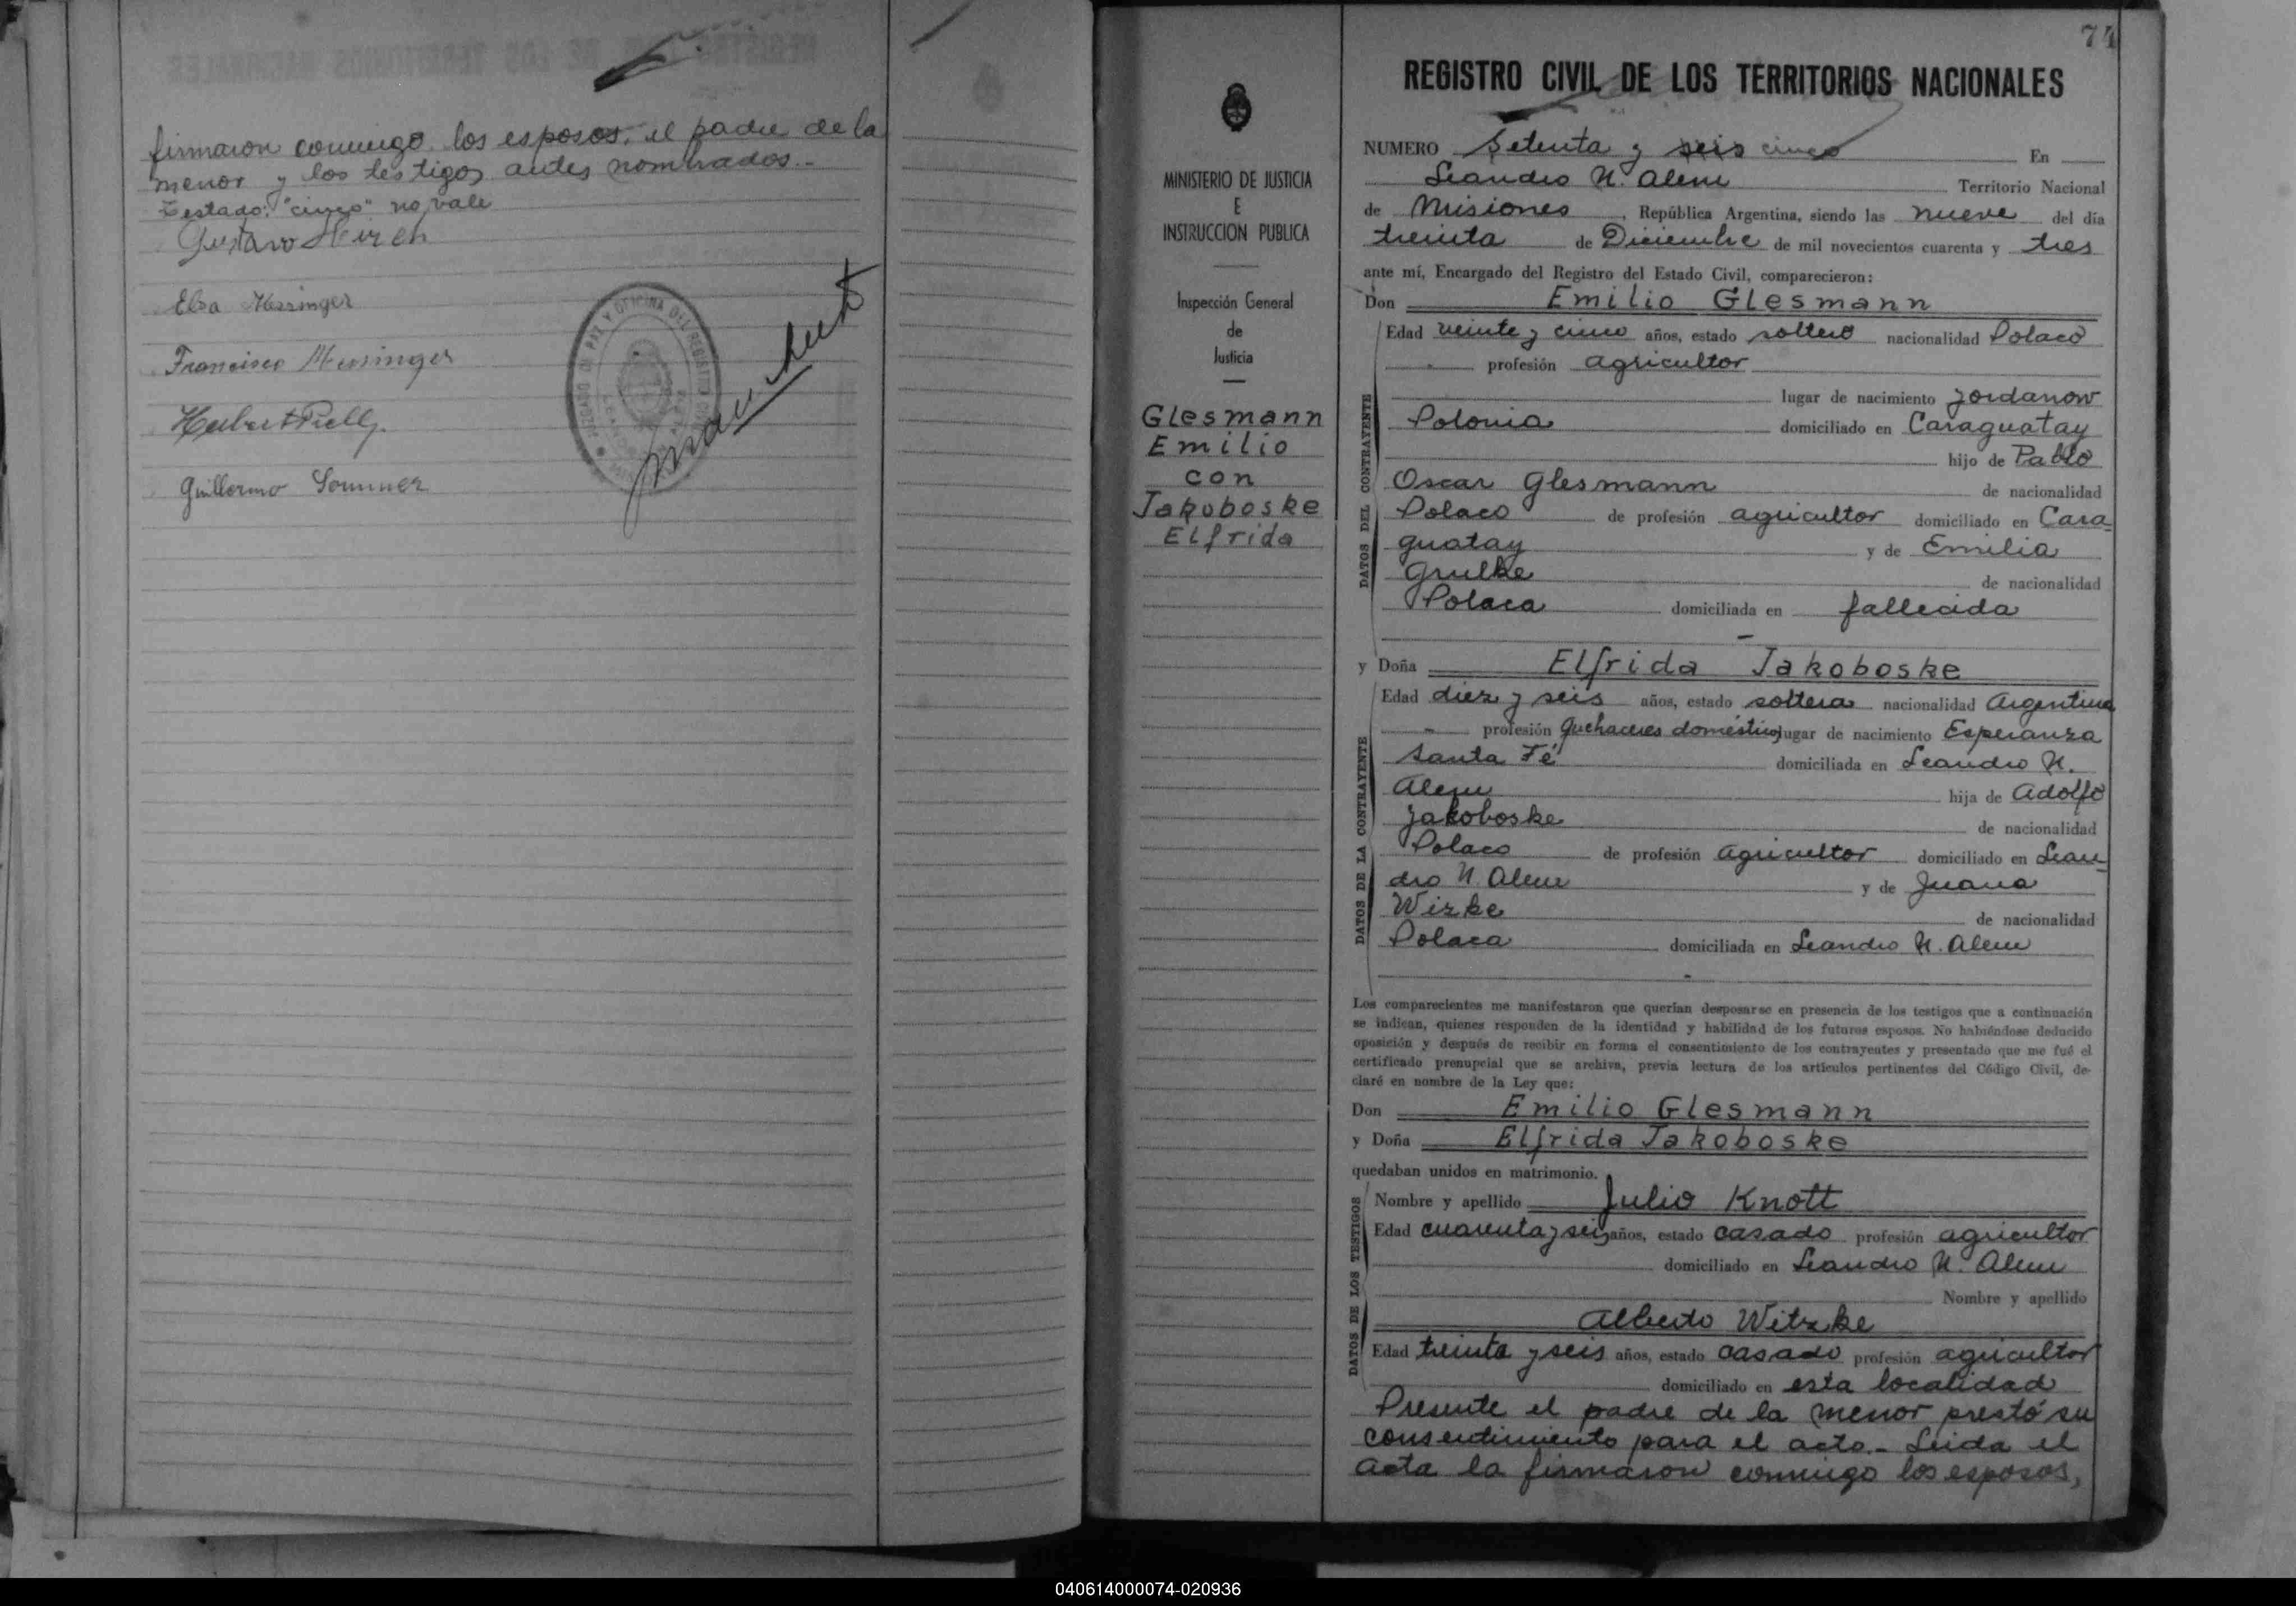 firmaron conmigo los esposos, el padre de la
menor y los testigos antes nombrados.-
Testado: "cinco" no vale
Gustavo
Elsa Messinger
Francisco Messinger
Guillermo Sommer
JUZGADO DE PAZ Y OFICINA DEL REGISTRO
MINISTERIO DE JUSTICIA
E
INSTRUCCION PUBLICA
Inspección General
de
Justicia
Glesmann
Emilio
con
Jakoboske
Elfrida
74
REGISTRO CIVIL DE LOS TERRITORIOS NACIONALES
NUMERO Setenta y seis cinco En
Leandro N. Alem Territorio Nacional
de Misiones, República Argentina, siendo las nueve del día
treinta de Diciembre de mil novecientos cuarenta y tres
ante mí, Encargado del Registro del Estado Civil, comparecieron:
Don Emilio Glesmann
DATOS DEL CONTRAYENTE
Edad veinte y cinco años, estado soltero nacionalidad Polaco
profesión agricultor
lugar de nacimiento Jordanow
Polonia domiciliado en Caraguatay
hijo de Pablo
Oscar Glesmann de nacionalidad
Polaco de profesión agricultor domiciliado en Cara-
guatay y de Emilia
Grulke de nacionalidad
Polaca domiciliada en fallecida
y Doña Elfrida Jakoboske
DATOS DE LA CONTRAYENTE
Edad diez y seis años, estado soltera nacionalidad Argentina
profesión quehaceres domésticos lugar de nacimiento Esperanza
Santa Fé domiciliada en Leandro N.
Alem hija de Adolfo
Jakoboske de nacionalidad
Polaco de profesión agricultor domiciliado en Lean-
dro N. Alem y de Juana
Wizke de nacionalidad
Polaca domiciliada en Leandro N. Alem
Los comparecientes me manifestaron que querían desposarse en presencia de los testigos que a continuación
se indican, quienes responden de la identidad y habilidad de los futuros esposos. No habiéndose deducido
oposición y después de recibir en forma el consentimiento de los contrayentes y presentado que me fué el
certificado prenupcial que se archiva, previa lectura de los artículos pertinentes del Código Civil, de-
claré en nombre de la Ley que:
Don Emilio Glesmann
y Doña Elfrida Jakoboske
quedaban unidos en matrimonio.
DATOS DE LOS TESTIGOS
Nombre y apellido Julio Knott
Edad cuarenta y seis años, estado casado profesión agricultor
domiciliado en Leandro N. Alem
Nombre y apellido
Alberto Witzke
Edad treinta y seis años, estado casado profesión agricultor
domiciliado en esta localidad
Presente el padre de la menor prestó su
consentimiento para el acto.- Leida el
acta la firmaron conmigo los esposos,
040614000074-020936